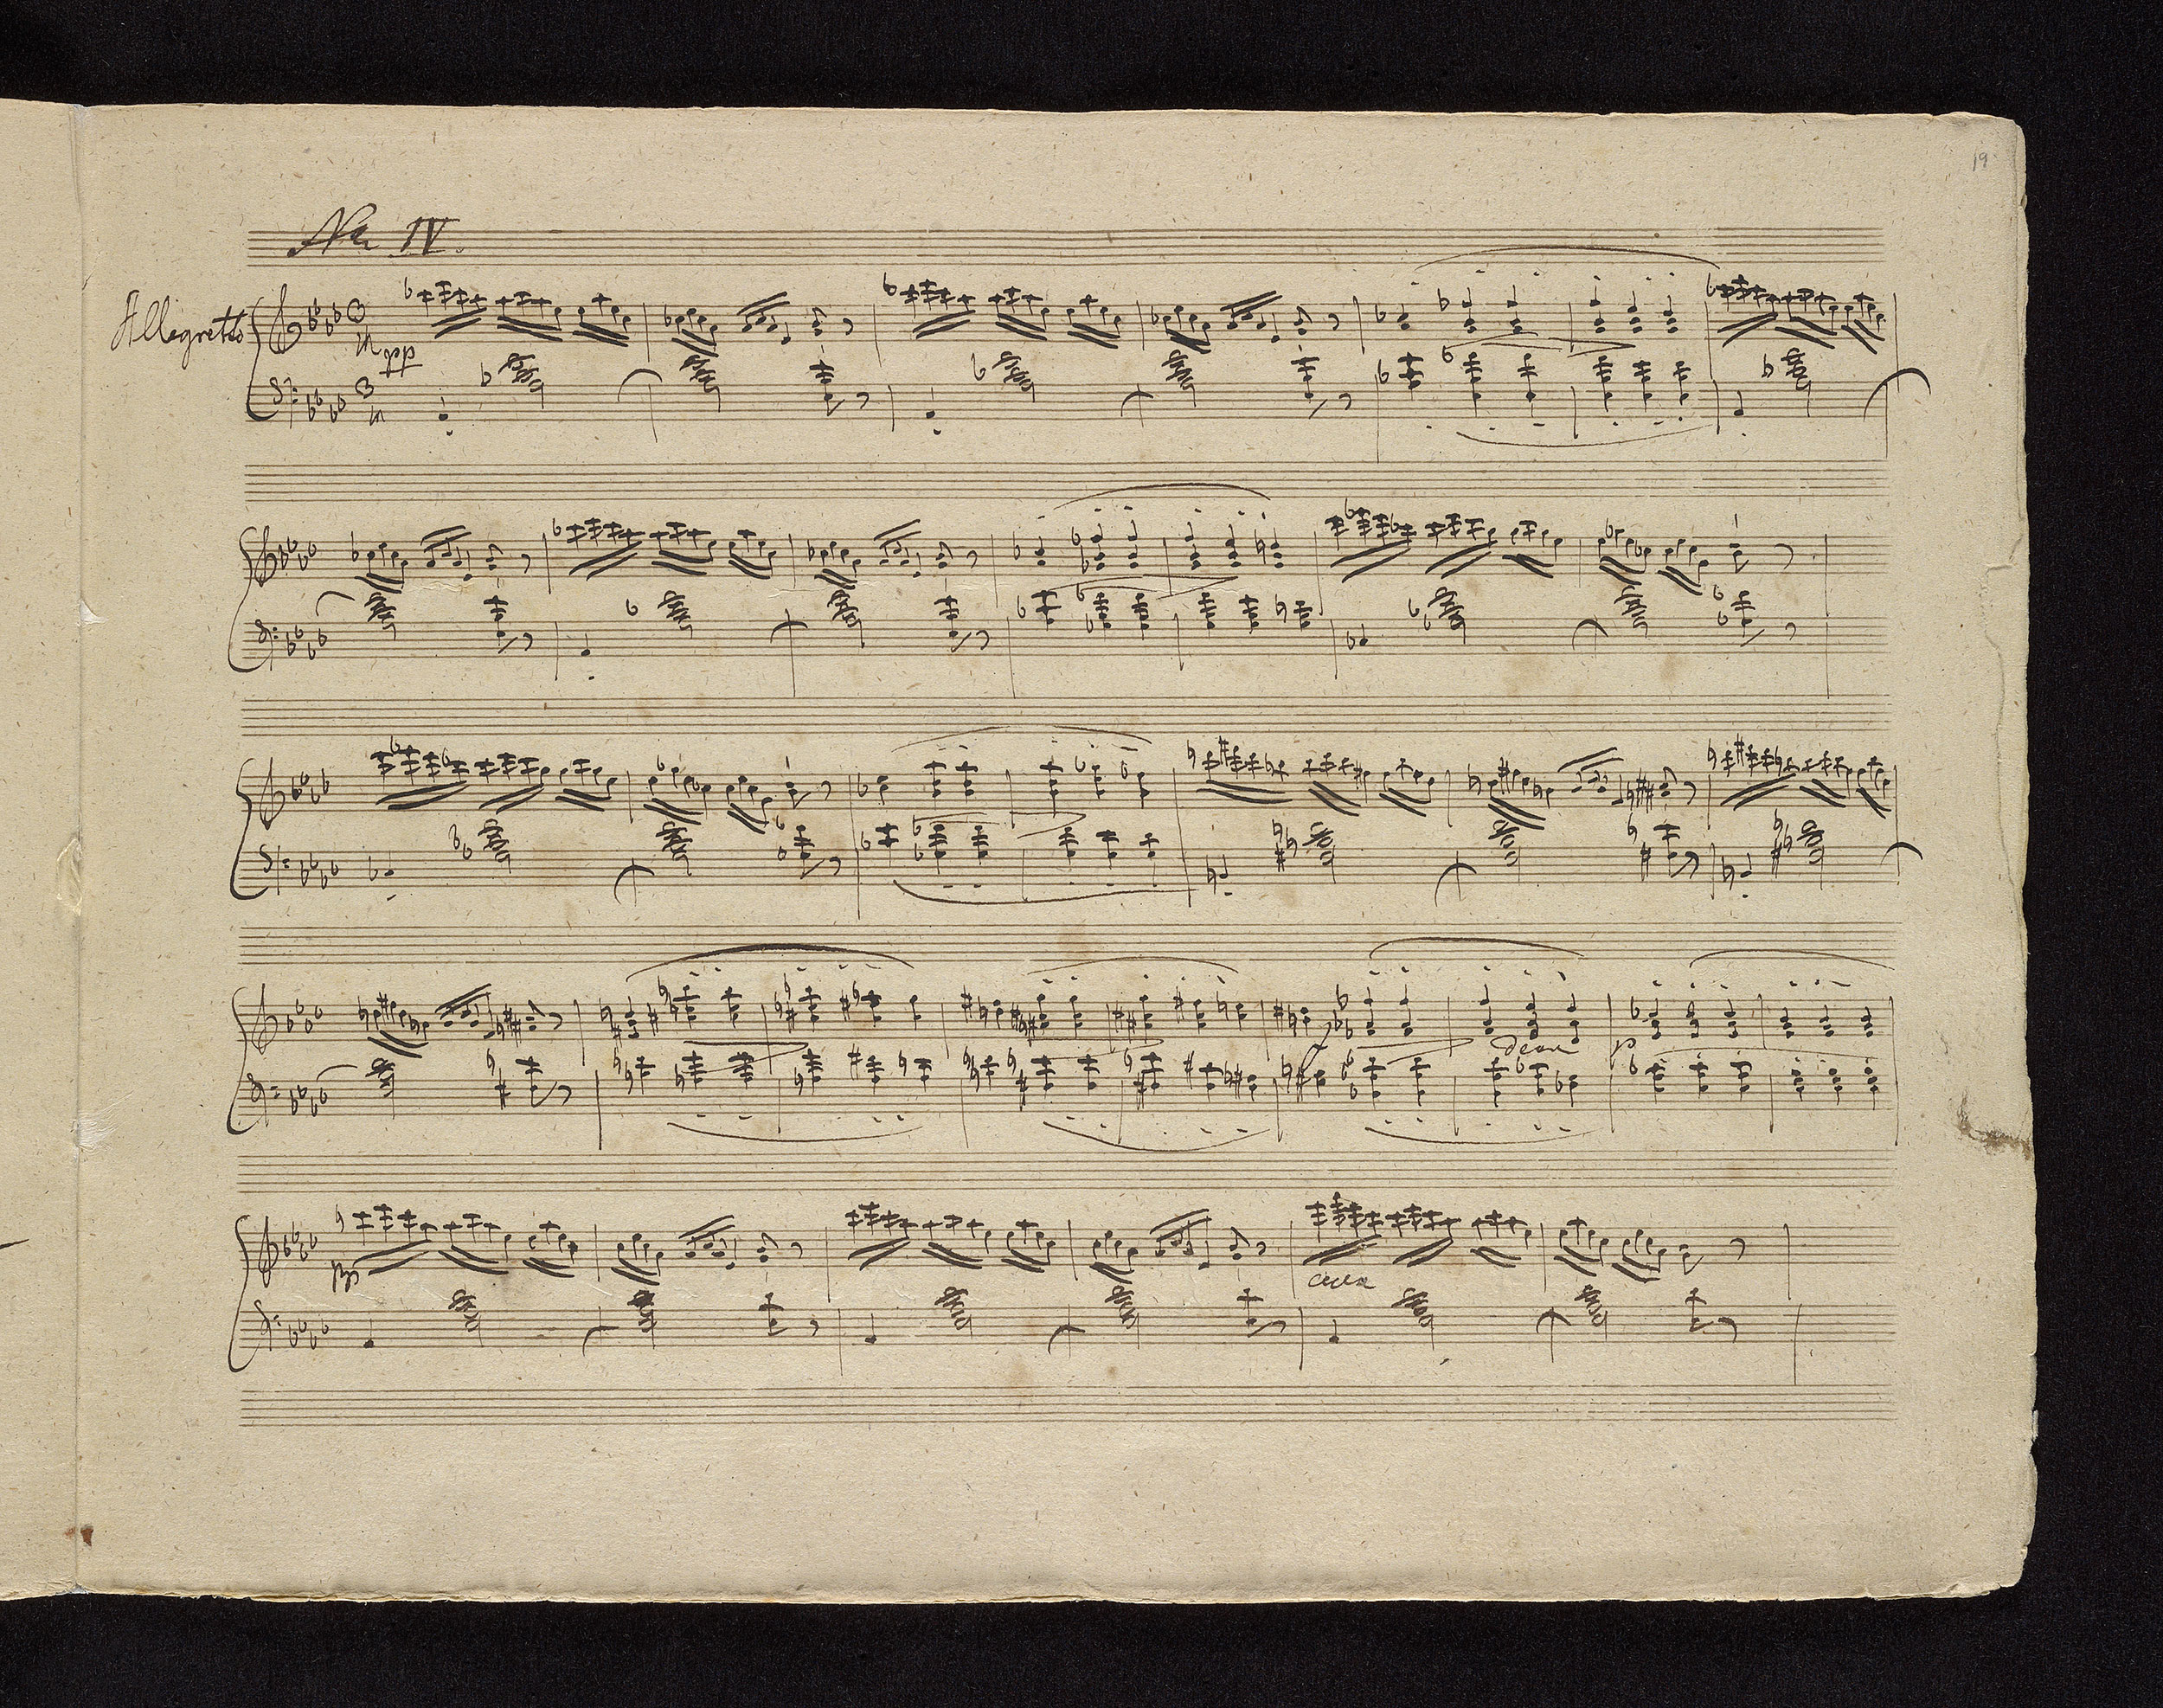 19
No IV.
Allegretto
pp
decr
p
pp
cresc